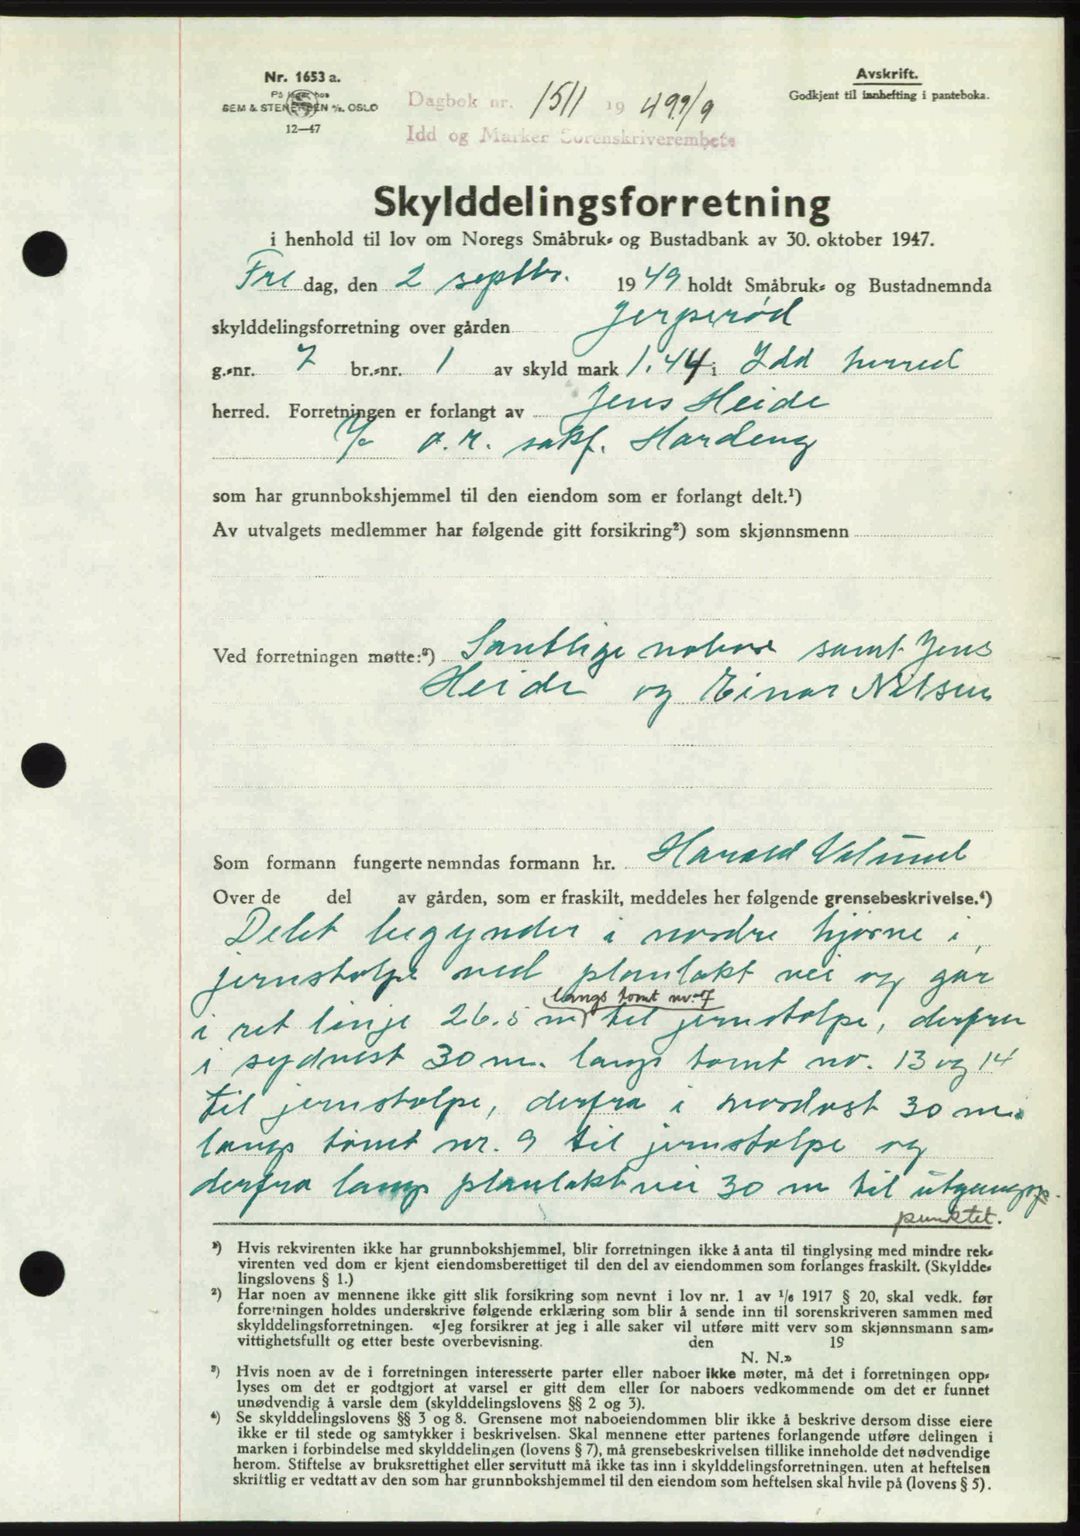 Nr. 1653 a.
På lager hos
SEM & STENERSEN A/S. OSLO
12—47
Dagbok nr. 1511 19 49 9/9
Idd og Marker Sorenskriverembete
Avskrift.
Godkjent til innhefting i panteboka.
Skylddelingsforretning
i henhold til lov om Noregs Småbruk- og Bustadbank av 30. oktober 1947.
Fre dag, den 2 septbr. 1949 holdt Småbruk- og Bustadnemnda
skylddelingsforretning over gården Jerperød
g.-nr. 7 br.-nr. 1 av skyld mark 1.44 i Idd herred
herred. Forretningen er forlangt av Jens Heide
o.r. sakf. Hardeng
som har grunnbokshjemmel til den eiendom som er forlangt delt.¹)
Av utvalgets medlemmer har følgende gitt forsikring²) som skjønnsmenn
Ved forretningen møtte:³) Samtlige naboer samt Jens
Heide og Einar Nilsen
Som formann fungerte nemndas formann hr. Harald
Over de del av gården, som er fraskilt, meddeles her følgende grensebeskrivelse.⁴)
Delet begynder i nordre hjørne i
jernstolpe ved planlakt vei og går
langs tomt nr. 7
i ret linje 26.5 m til jernstolpe, derfra
i sydvest 30 m. langs tomt nr. 13 og 14
til jernstolpe, derfra i nordvest 30 m.
langs tomt nr. 9 til jernstolpe og
derfra langs planlakt vei 30 m til utgangs-
punktet.
¹) Hvis rekvirenten ikke har grunnbokshjemmel, blir forretningen ikke å anta til tinglysing med mindre rek-
virenten ved dom er kjent eiendomsberettiget til den del av eiendommen som forlanges fraskilt. (Skyldde-
lingslovens § 1.)
²) Har noen av mennene ikke gitt slik forsikring som nevnt i lov nr. 1 av 1/6 1917 § 20, skal vedk. før
forretningen holdes underskrive følgende erklæring som blir å sende inn til sorenskriveren sammen med
skylddelingsforretningen. «Jeg forsikrer at jeg i alle saker vil utføre mitt verv som skjønnsmann sam-
vittighetsfullt og etter beste overbevisning. den 19
N. N.»
³) Hvis noen av de i forretningen interesserte parter eller naboer ikke møter, må det i forretningen opp-
lyses om det er godtgjort at varsel er gitt dem eller for naboers vedkommende om det er funnet
unødvendig å varsle dem (skylddelingslovens §§ 2 og 3).
⁴) Se skylddelingslovens §§ 3 og 8. Grensene mot naboeiendommen blir ikke å beskrive dersom disse eiere
ikke er til stede og samtykker i beskrivelsen. Skal mennene etter partenes forlangende utføre delingen i
marken i forbindelse med skylddelingen (lovens § 7), må grensebeskrivelsen tillike inneholde det nødvendige
herom. Stiftelse av bruksrettighet eller servitutt må ikke tas inn i skylddelingsforretningen. uten at heftelsen
skriftlig er vedtatt av den som har grunnbokshjemmel til den eiendom som heftelsen skal hvile på (lovens § 5).